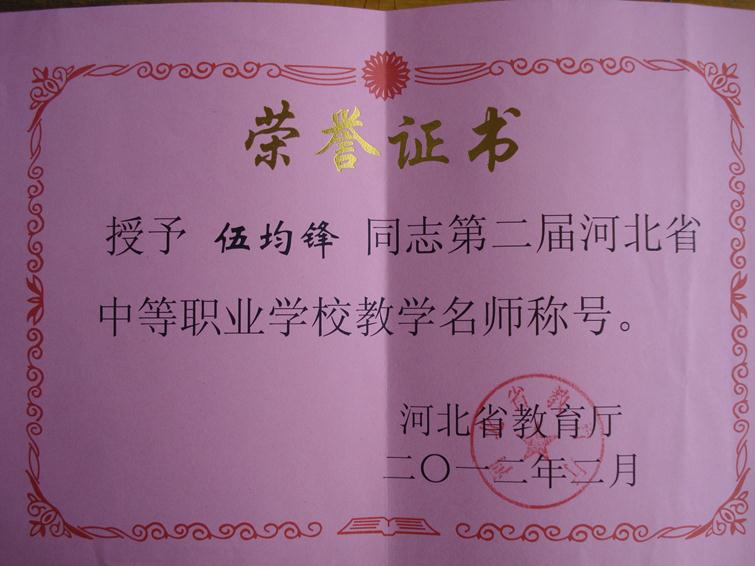 荣誉证书
授予 伍均锋 同志第二届河北省
中等职业学校教学名师称号。
河北省教育厅
二〇一二年二月